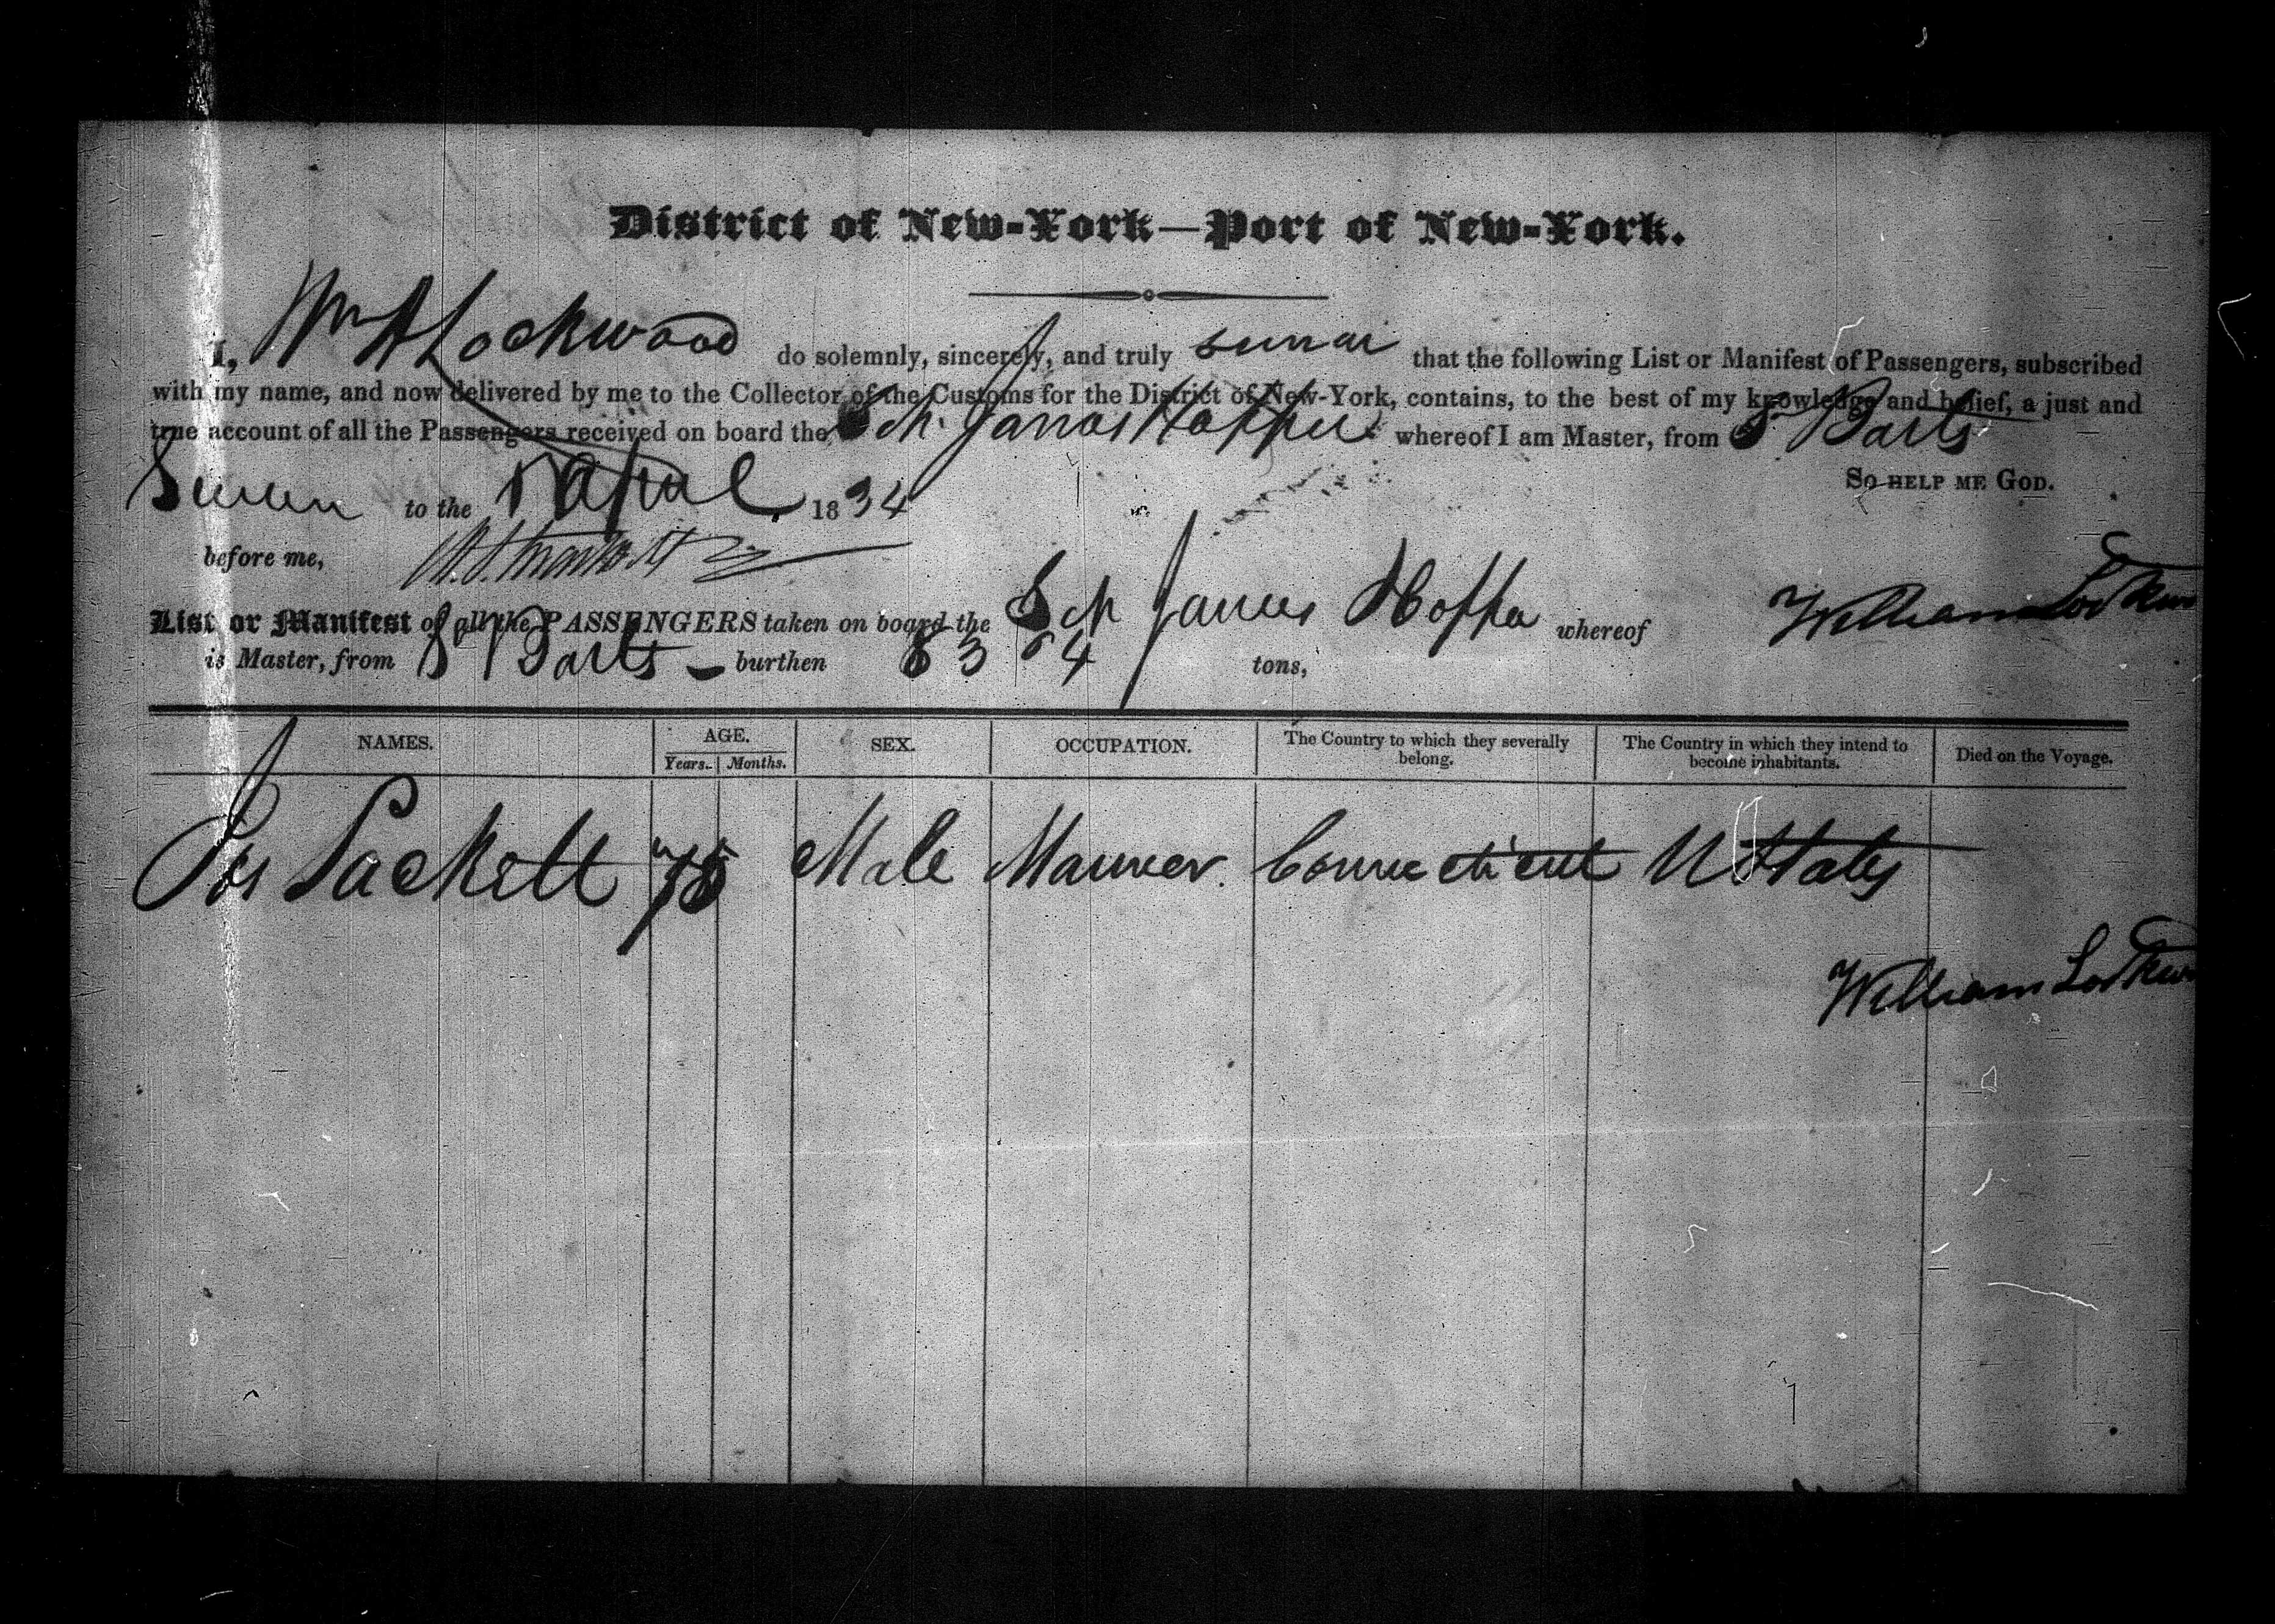 District of New-York—Port of New-York.
I, Wm A Lockwood do solemnly, sincerely, and truly swear that the following List or Manifest of Passengers, subscribed
with my name, and now delivered by me to the Collector of the Customs for the District of New-York, contains, to the best of my knowledge and belief, a just and
true account of all the Passengers received on board the Sch. James whereof I am Master, from St Barts
So help me God.
Sworn to the April 1834
before me,
List or Manifest of all the PASSENGERS taken on board the Sch James whereof William
is Master, from St Barts - burthen 83 64 tons,
NAMES. AGE. SEX. OCCUPATION. The Country to which they severally belong. The Country in which they intend to become inhabitants. Died on the Voyage.
Years. Months.
Sackett Male Mariner. Connecticut U States
William